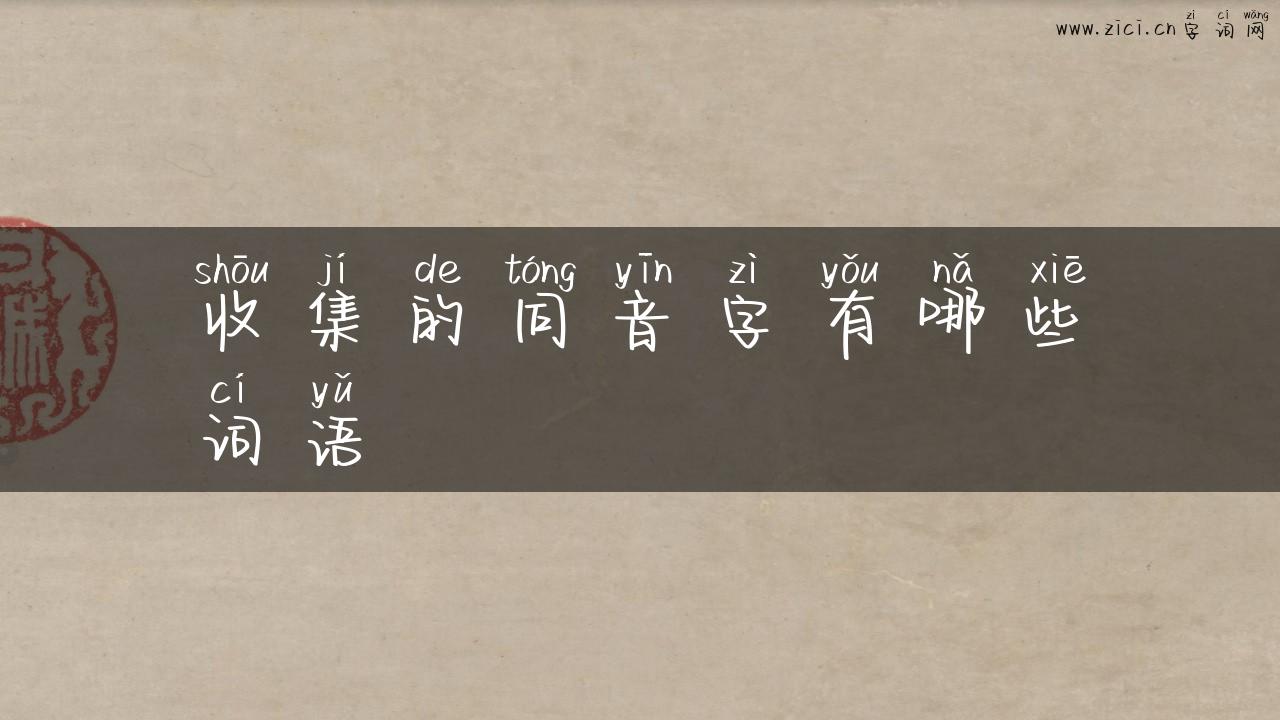 zì cí wǎng
www.zici.cn字词网
shōu jí de tóng yīn zì yǒu nǎ xiē
收集的同音字有哪些
cí yǔ
词语